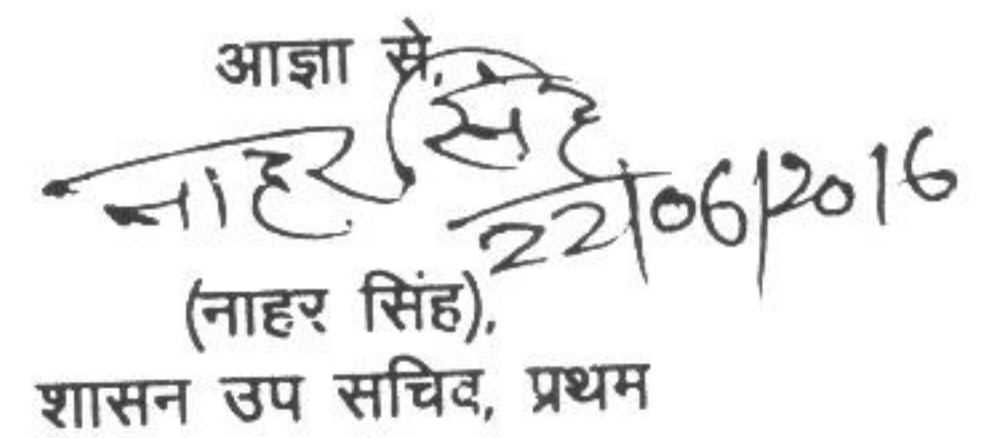 आज्ञा से,
नाहर सिंह
22/06/2016
(नाहर सिंह),
शासन उप सचिव, प्रथम